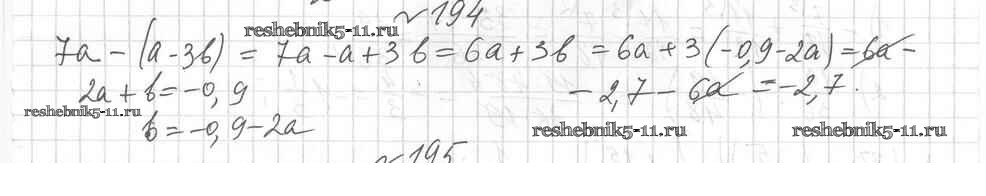 №194
reshebnik5-11.ru
7a - (a - 3b) = 7a - a + 3b = 6a + 3b = 6a + 3(-0,9 - 2a) = 6a -
2a + b = -0,9
- 2,7 - 6a = -2,7.
reshebnik5-11.ru
b = -0,9 - 2a
reshebnik5-11.ru
reshebnik5-11.ru
№195